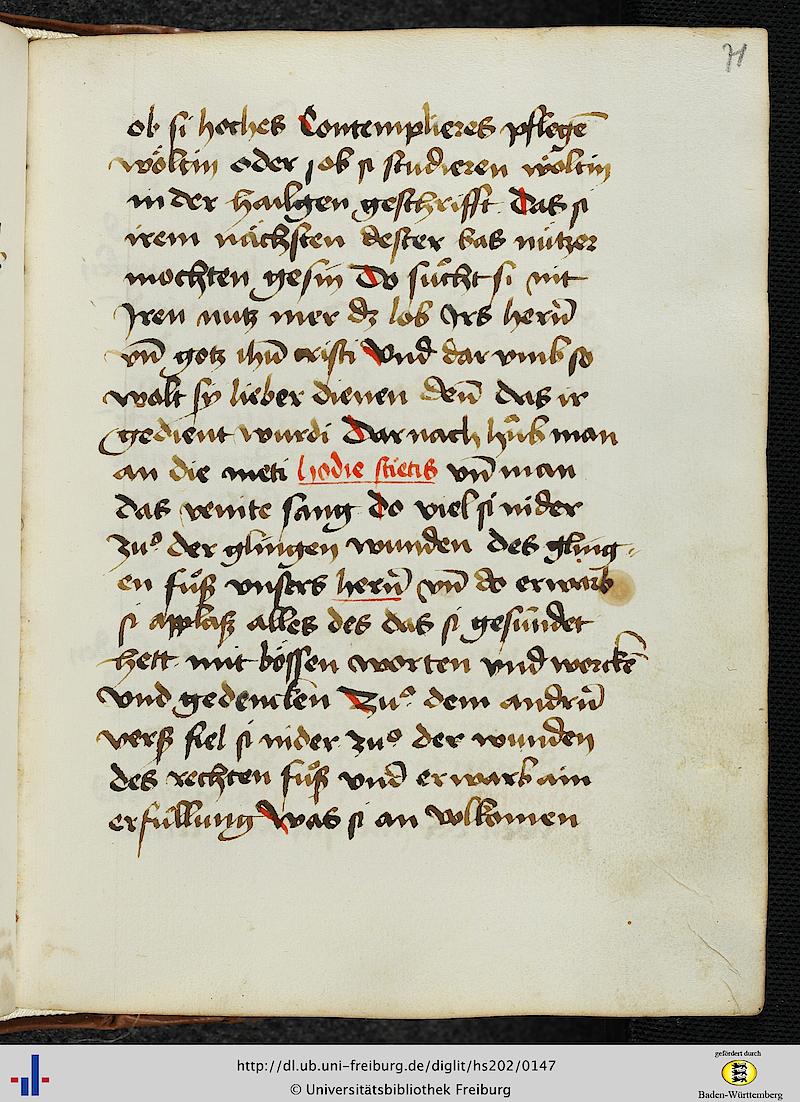 71
ob si hoches Contemplieres pflegē
wöltin oder ob si studieren wöltin
in der hailgen geschrifft Das si
irem nächsten dester bas nützer
mochten gesin Do sůcht si nit
Jren nutz mer dz lob Jrs herñ
vñ gotz ihū cristi Vnd dar vmb so
wolt sy lieber dienen deñ das ir
gedient wurdi Dar nach hůb man
an die meti hodie scietis vñ man
das venite sang do viel si nider
zuͦ der glingen wunden des gling-
en fůß vnsers herñ vñ do erwarb
si applaß alles des das si gesündet
hett mit bössen worten vnd werckē
vnd gedencken Zuͦ dem andrñ
verß fiel si nider zuͦ der wunden
des rechten fůß vnd erwarb ain
erfüllung Was si an volkomen
http://dl.ub.uni-freiburg.de/diglit/hs202/0147
© Universitätsbibliothek Freiburg
gefördert durch
Baden-Württemberg